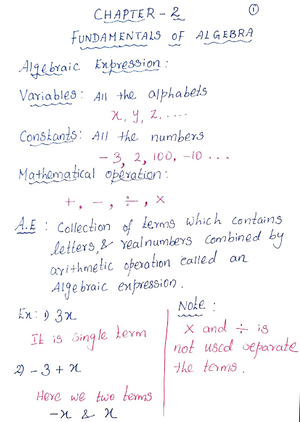 CHAPTER - 2
①
FUNDAMENTALS OF ALGEBRA
Algebraic Expression :
Variables : All the alphabets
x, y, z, .....
Constants : All the numbers
- 3, 2, 100, -10 ...
Mathematical operation :
+, -, ÷, ×
A.E : Collection of terms which contains
letters, & real numbers combined by
arithmetic operation called an
Algebraic expression.
Ex: 1) 3x
It is single term
2) -3 + x
Here we two terms
-x & x
Note :
× and ÷ is
not used separate
the terms.